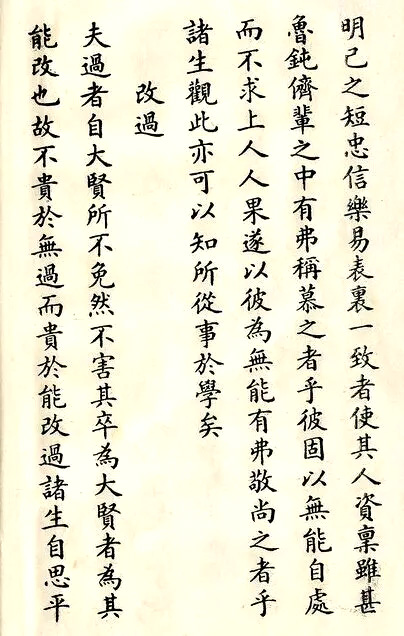 明己之短忠信樂易表裏一致者使其人資稟雖甚
魯鈍儕輩之中有弗稱慕之者乎彼固以無能自處
而不求上人人果遂以彼為無能有弗敬尚之者乎
諸生觀此亦可以知所從事於學矣
改過
夫過者自大賢所不免然不害其卒為大賢者為其
能改也故不貴於無過而貴於能改過諸生自思平